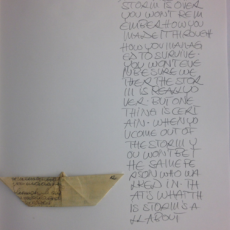 STORM IS OVER
YOU WON'T REM
EMBER HOW YOU
MADE IT THROUGH
HOW YOU MANAG
ED TO SURVIVE.
YOU WON'T EVE
N BE SURE WE
THER THE STOR
M IS REALLY O
VER. BUT ONE
THING IS CERT
AIN. WHEN YO
U COME OUT OF
THE STORM Y
OU WON'T BE T
HE SAME PE
RSON WHO WA
LKED IN. TH
ATS WHAT TH
IS STORM'S A
LL ABOUT